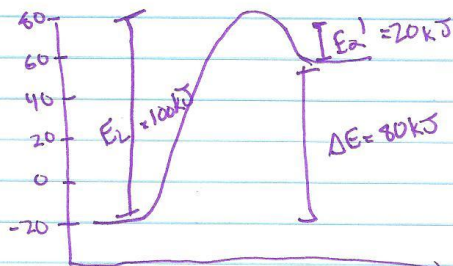 80
60
40
20
0
-20
E₂ = 100kJ
E₂' = 20kJ
ΔE = 80kJ